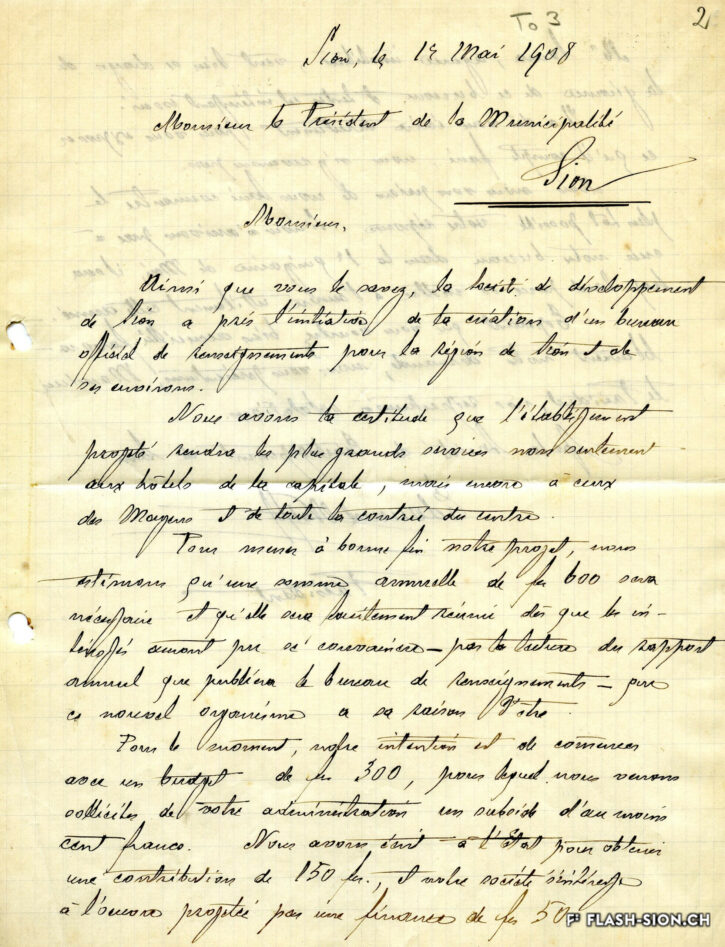 To 3
2
Sion, le 15 Mai 1908
Monsieur le Président de la Municipalité
Sion
Monsieur,
Ainsi que vous le savez, la société de développement
de Sion a pris l'initiative de la création d'un bureau
officiel de renseignements pour la région de Sion & de
ses environs.
Nous avons la certitude que l'établissement
projeté rendra les plus grands services non seulement
aux hôtels de la capitale, mais encore à ceux
des Mayens & de toute la contrée du centre.
Pour mener à bonne fin notre projet, nous
estimons qu'une somme annuelle de frs 600 sera
nécessaire et qu'elle sera facilement réunie dès que les in-
téressés auront pu se convaincre – par la lecture du rapport
annuel que publiera le bureau de renseignements – que
ce nouvel organisme a sa raison d'être.
Pour le moment, notre intention est de commencer
avec un budget de frs 300, pour lequel nous venons
solliciter de votre administration un subside d'au moins
cent francs. Nous avons écrit à l'Etat pour obtenir
une contribution de 150 frs., & notre société s'intéresse
à l'oeuvre projetée par une finance de frs 50
FLASH-SION.CH